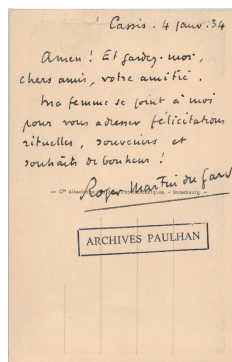 Cassis. 4 janv. 34
Amen ! Et gardez-moi,
chers amis, votre amitié.
Ma femme se joint à moi
pour vous adresser félicitations
rituelles, souvenirs et
souhaits de bonheur !
Roger Martin du Gard
Strasbourg —
ARCHIVES PAULHAN